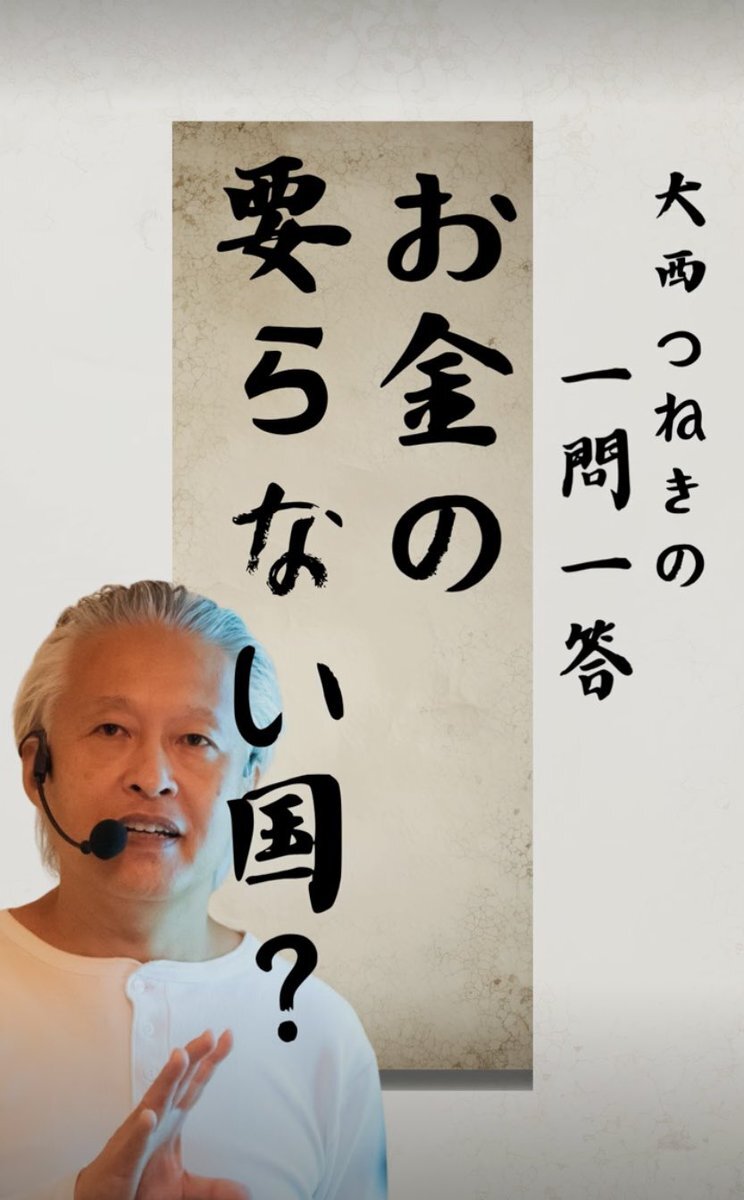 大西つねきの
一問一答
お金の
要らない国？